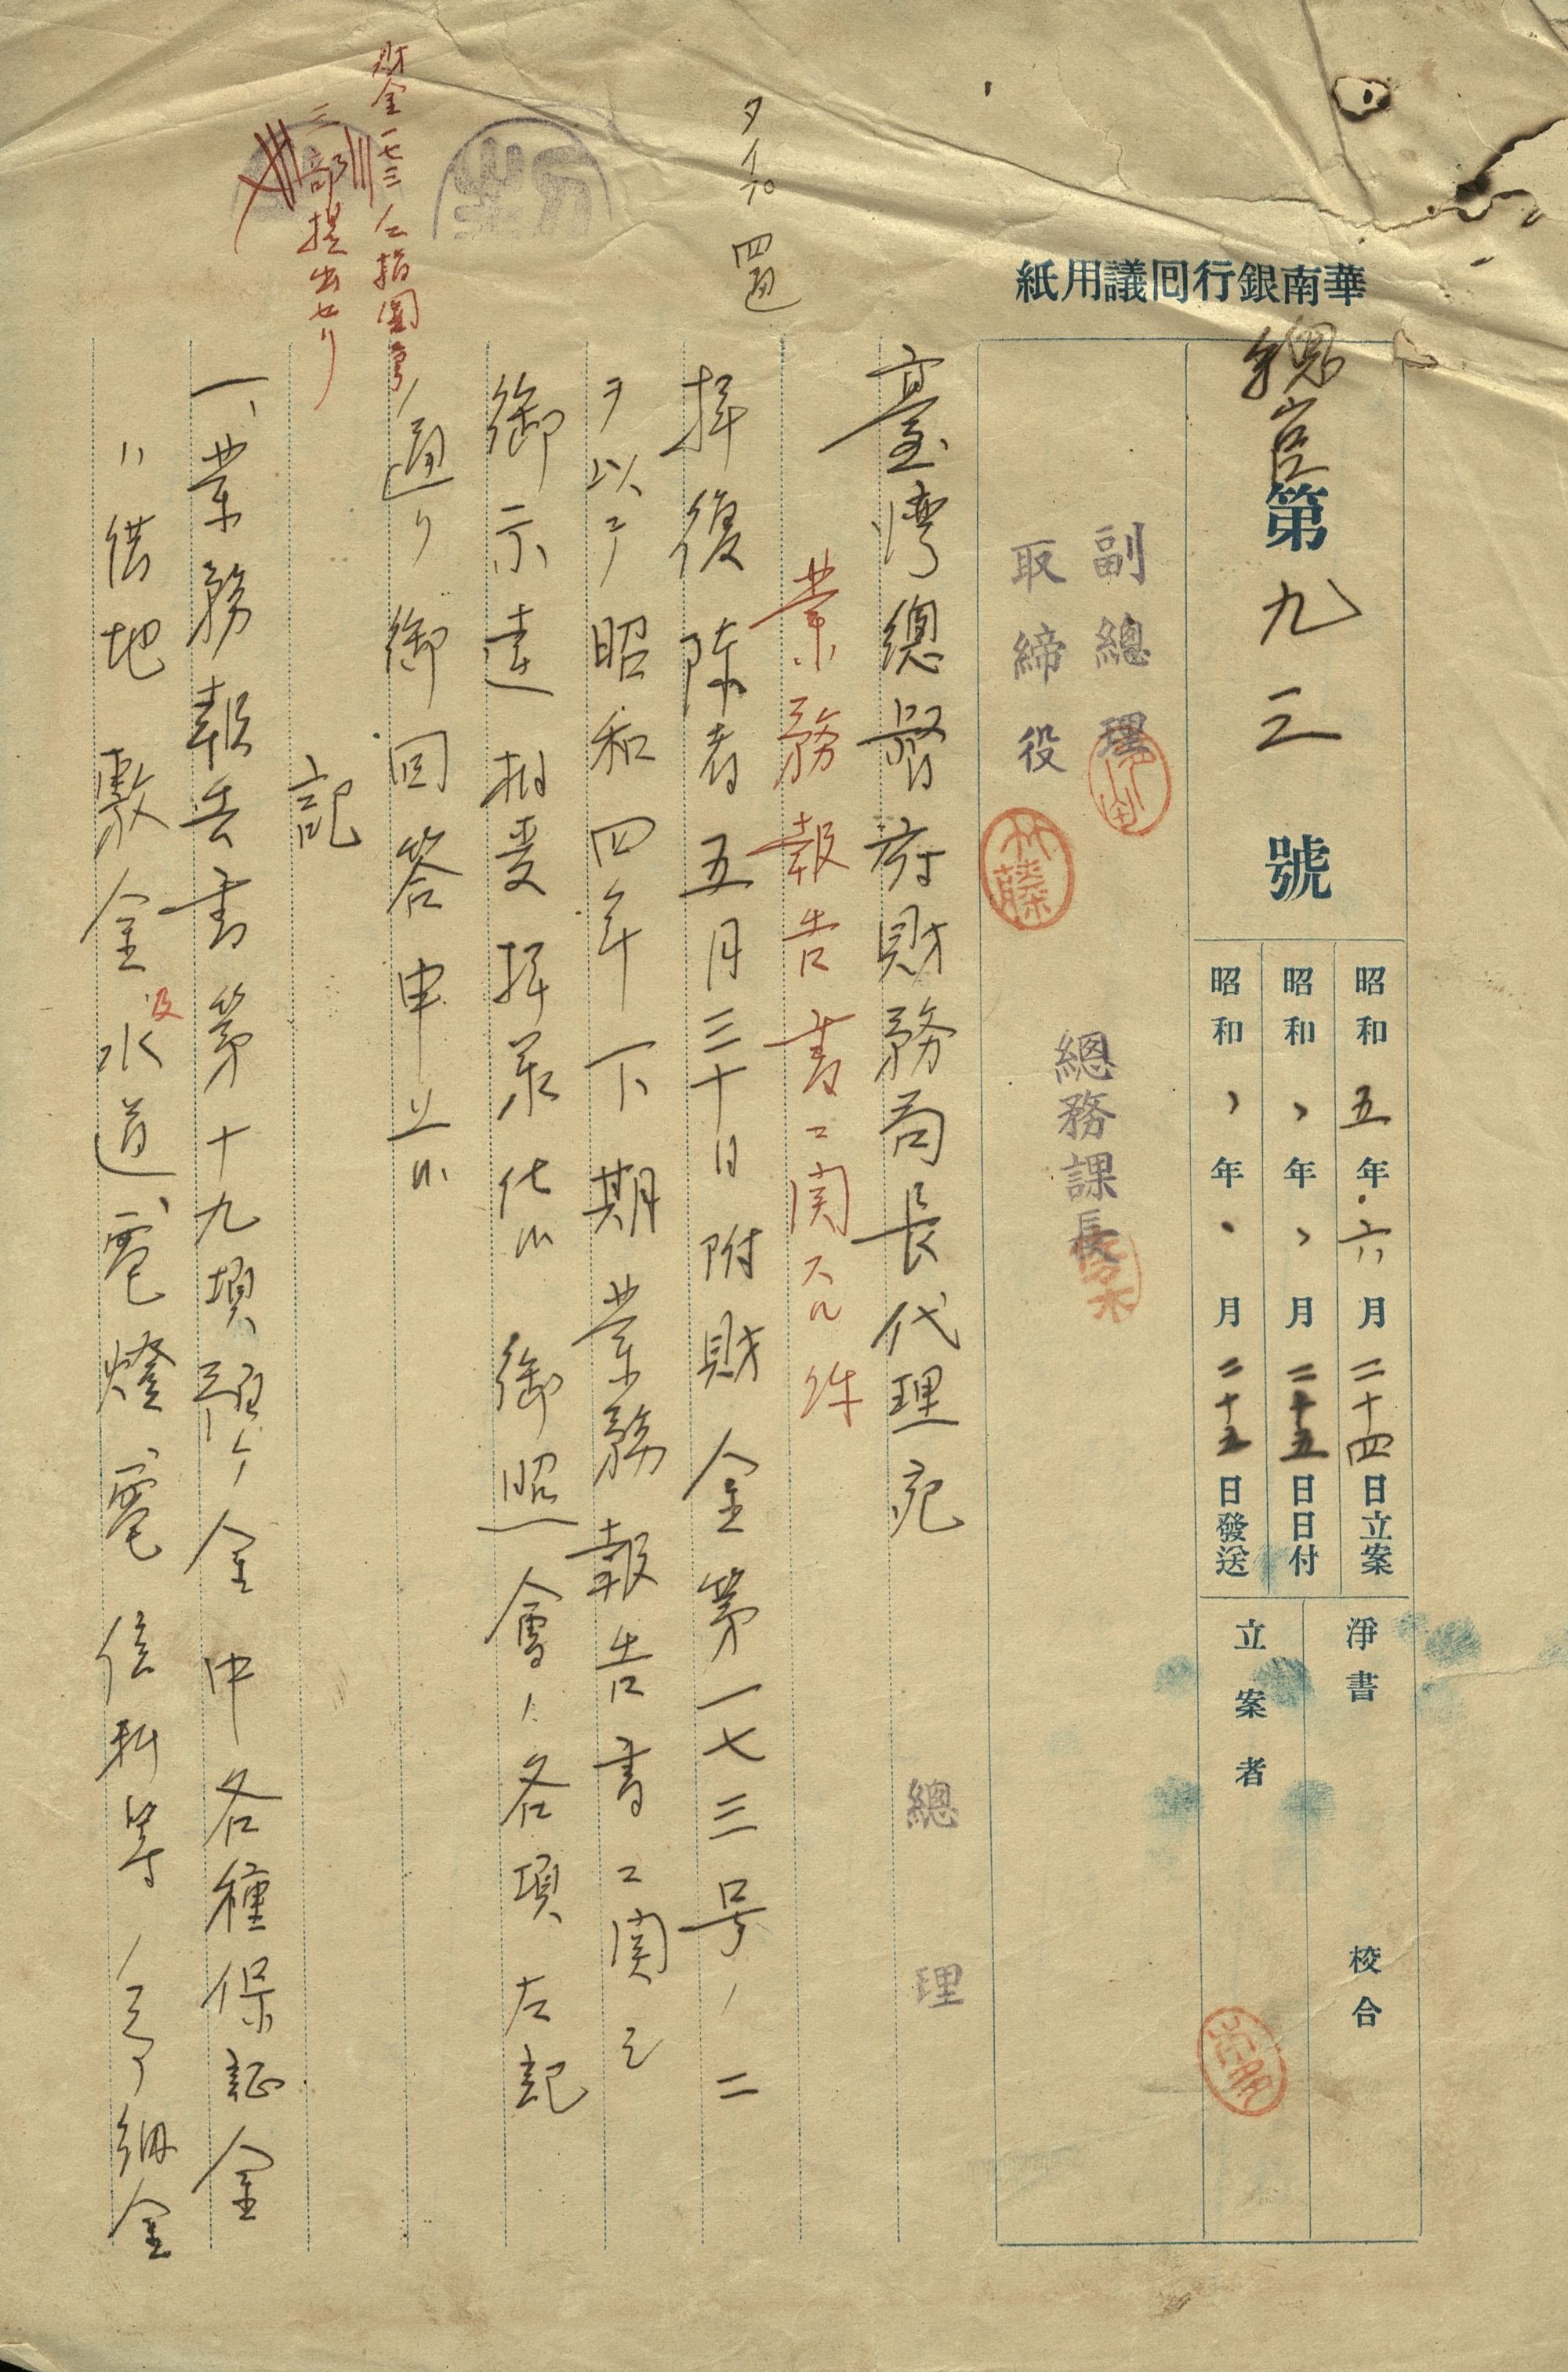 華南銀行囘議用紙
總官第九三號
昭和五年六月二十四日立案
昭和、年、月二十五日日付
昭和、年、月二十五日發送
淨書 校合
立案者
副總理
取締役
總務課長
總理
タイプ 四通
臺湾總督府財務局長代理宛
業務報告書ニ関スル件
拜復陳者五月三十日附財金第一七三号ノ二
ヲ以テ昭和四年下期業務報告書ニ関シ
御示達相受拜承仕候御照會ノ各項左記
ノ通リ御回答申上候
記
財金一七三
二部提出セリ
一、業務報告書第十九項預ケ金中各種保証金
ハ借地敷金及水道、電燈、電信料等ノ予納金